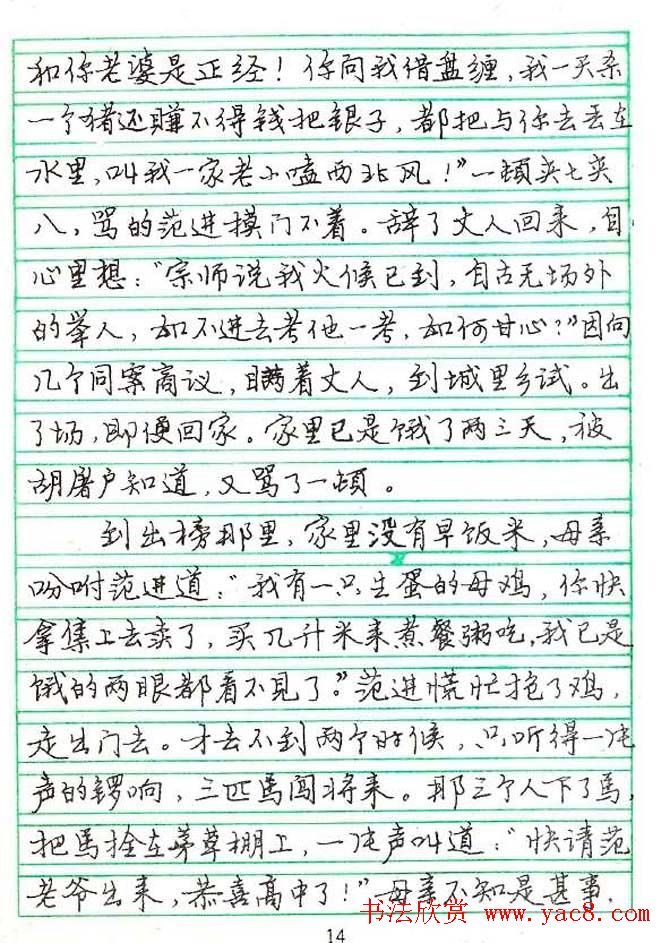 和你老婆是正经！你问我借盘缠，我一天杀
一个猪还賺不得钱把银子，都把与你去丢在
水里，叫我一家老小嗑西北风！”一頓夹七夹
八，骂的范进摸门不着。辞了丈人回来，自
心里想：“宗师说我火候已到，自古无场外
的举人，如不进去考他一考，如何甘心？”因向
几个同案商议，瞒着丈人，到城里乡试。出
了场，即便回家。家里已是饿了两三天，被
胡屠户知道，又骂了一頓。
到出榜那里，家里没有早饭米，母亲
吩咐范进道：“我有一只生蛋的母鸡，你快
拿集上去卖了，买几升米来煮餐粥吃，我已是
饿的两眼都看不見了。”范进慌忙抱了鸡，
走出门去。才去不到两个时候，只听得一片
声的锣响，三匹馬闯将来。那三个人下了馬，
把馬拴在茅草棚上，一片声叫道：“快请范
老爷出来，恭喜高中了！”母亲不知是甚事，
14
书法欣赏 www.yac8.com